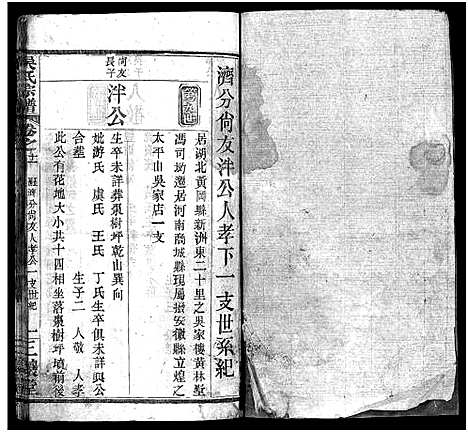 濟分尙友泮公人孝下一支世系紀
居湖北黃岡縣新洲東二十里之吳家樓黃林塹
馮司坳遷居河南商城縣現屬撥安徽縣立煌之
太平山吳家店一支
尙友
長子
泮公
生卒未詳葬棗樹坪乾山巽向
妣游氏 虞氏 王氏 丁氏生卒與詳與公
合塋 生子二 人敬 人孝
此公有花地大小共十四相坐落棗樹坪墳前後
吳氏宗譜
卷之
濟分尙友人孝公一支世紀